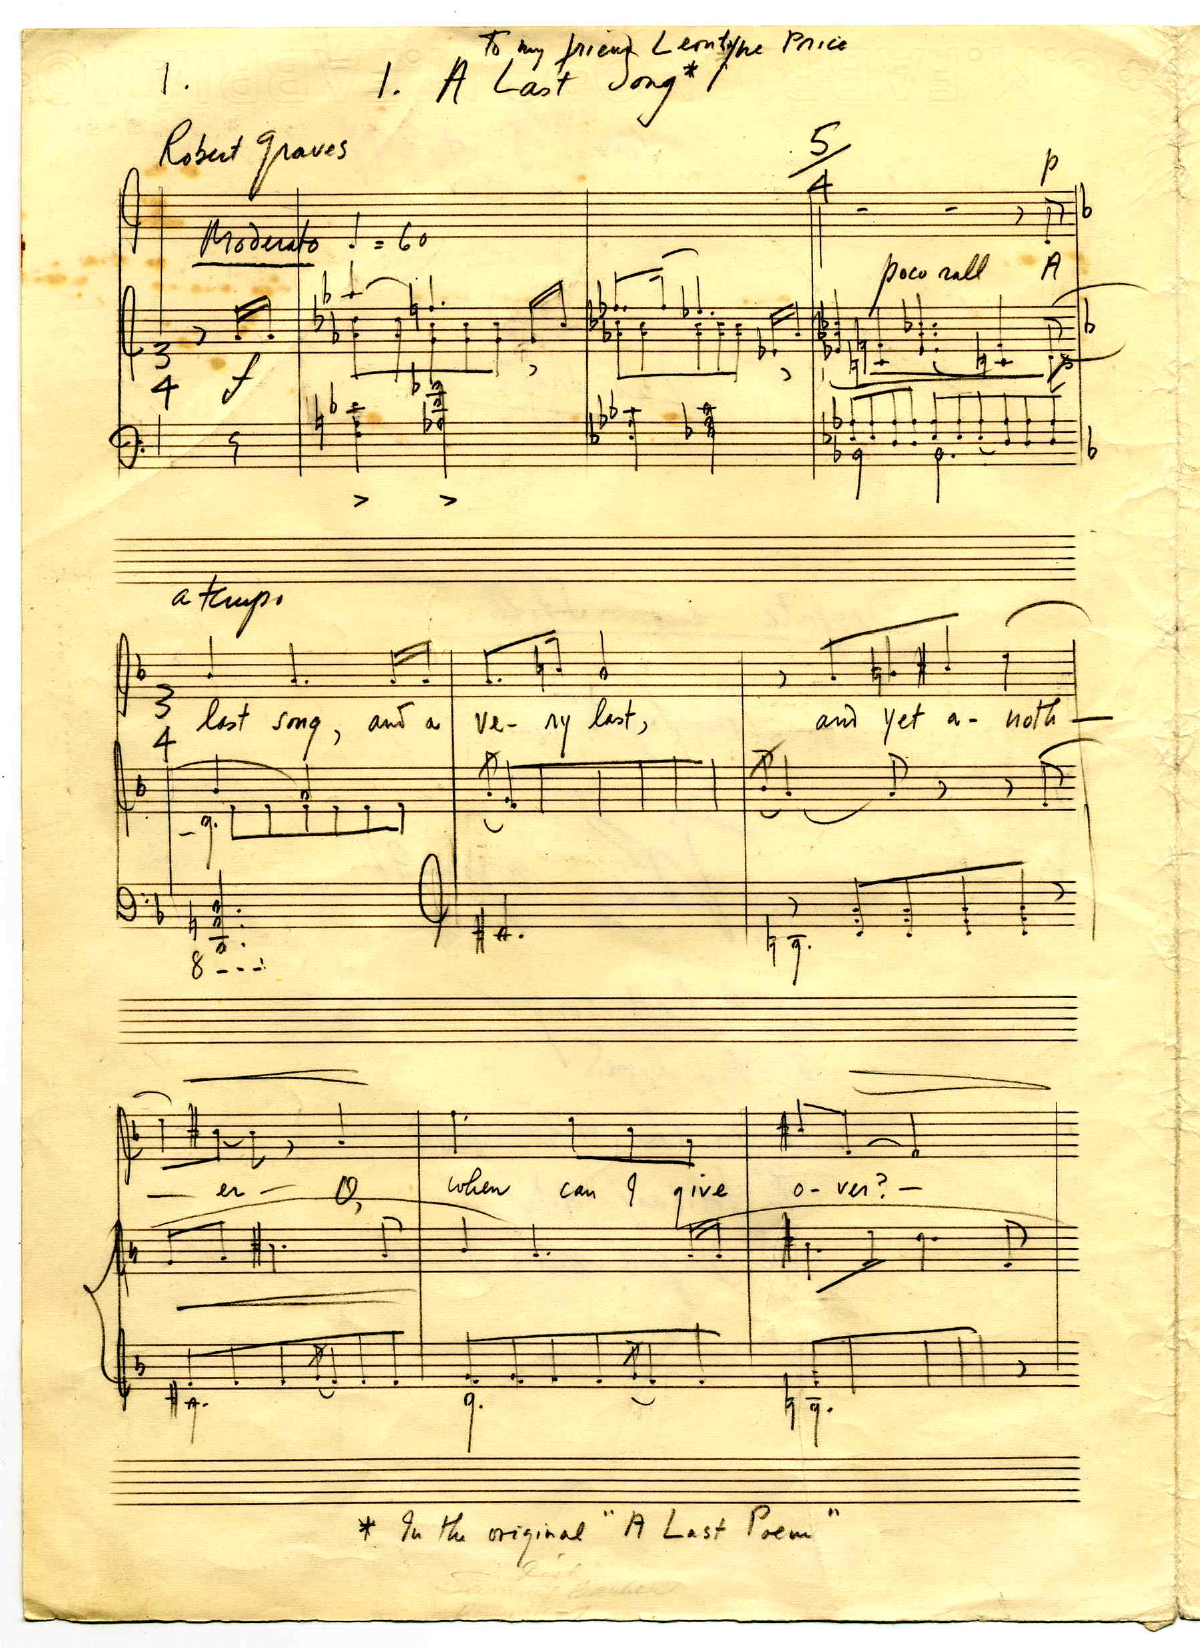 To my friend Leontyne Price
1. 1. A Last Song*
Robert Graves
5/4
p
Moderato ♩ = 60
poco rall A
3
4 f
> >
a tempo
3
4
last song, and a ve- ry last, and yet a- noth —
8 ---
— er — O, when can I give o- ver? —
* In the original "A Last Poem"